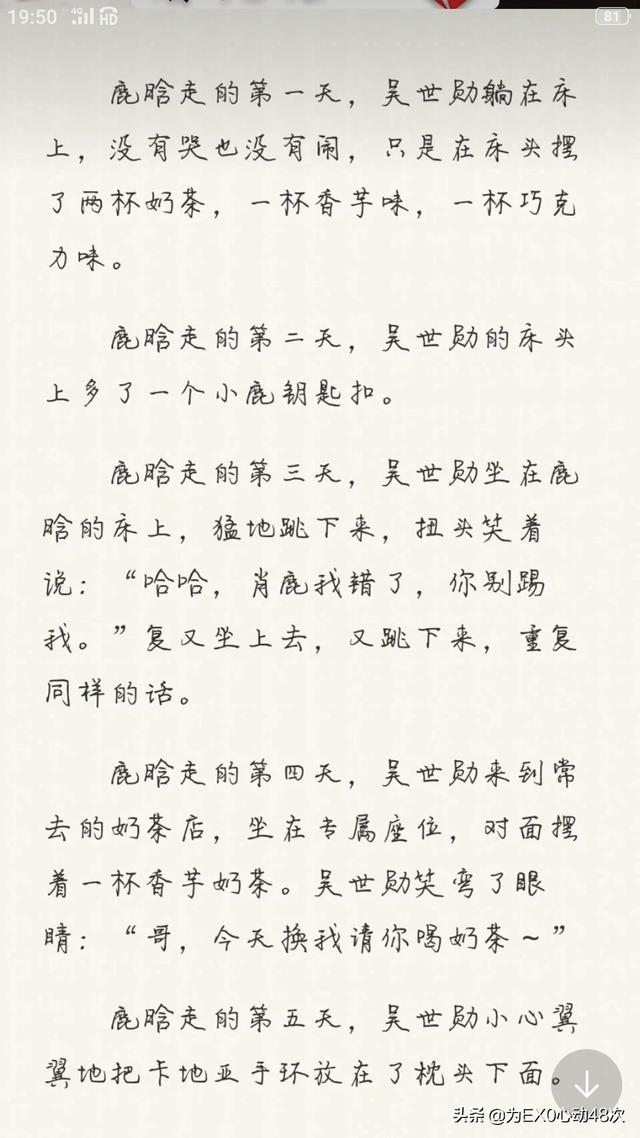 19:50 4G HD 81
鹿晗走的第一天，吴世勋躺在床
上，没有哭也没有闹，只是在床头摆
了两杯奶茶，一杯香芋味，一杯巧克
力味。
鹿晗走的第二天，吴世勋的床头
上多了一个小鹿钥匙扣。
鹿晗走的第三天，吴世勋坐在鹿
晗的床上，猛地跳下来，扭头笑着
说：“哈哈，肖鹿我错了，你别踢
我。”复又坐上去，又跳下来，重复
同样的话。
鹿晗走的第四天，吴世勋来到常
去的奶茶店，坐在专属座位，对面摆
着一杯香芋奶茶。吴世勋笑弯了眼
睛：“哥，今天换我请你喝奶茶～”
鹿晗走的第五天，吴世勋小心翼
翼地把卡地亚手环放在了枕头下面。
头条 @为EXO心动48次